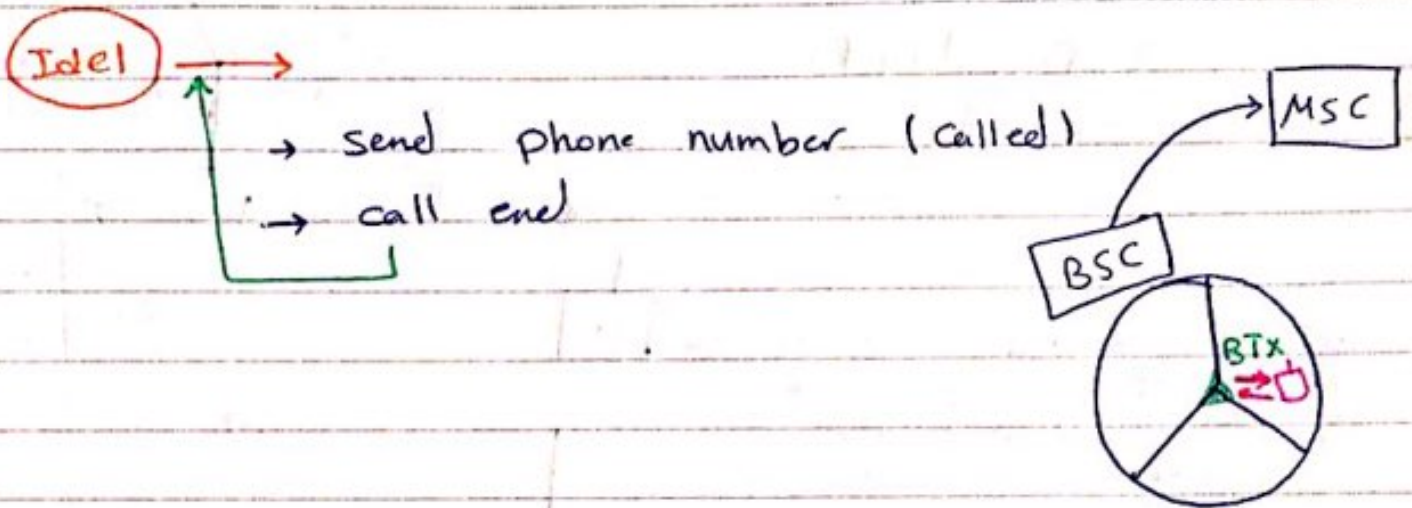 Idel
→ send phone number (called)
→ call end
MSC
BSC
BTx